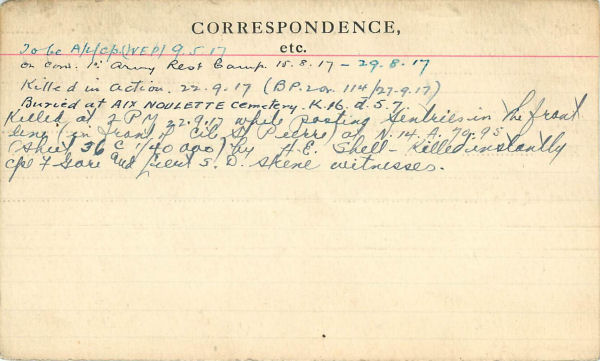 CORRESPONDENCE,
etc.
To be A/L/Cpl. (WEP) 9.5.17
on com. 1st Army Rest Camp. 15.8.17 - 29.8.17
Killed in action. 22.9.17 (B.P.2 or. 114/27-9.17)
Buried at AIX NOULETTE Cemetery. K.16. d. 5.7.
Killed at 2 PM 22.9.17 while posting Sentries in the front
line (in front of Cite St Pierre) at N.14.A.79.95
(Sheet 36 C 1/40 000) by H.E. Shell - Killed instantly
Cpl F Gore and Lieut S. D. Skene witnesses.